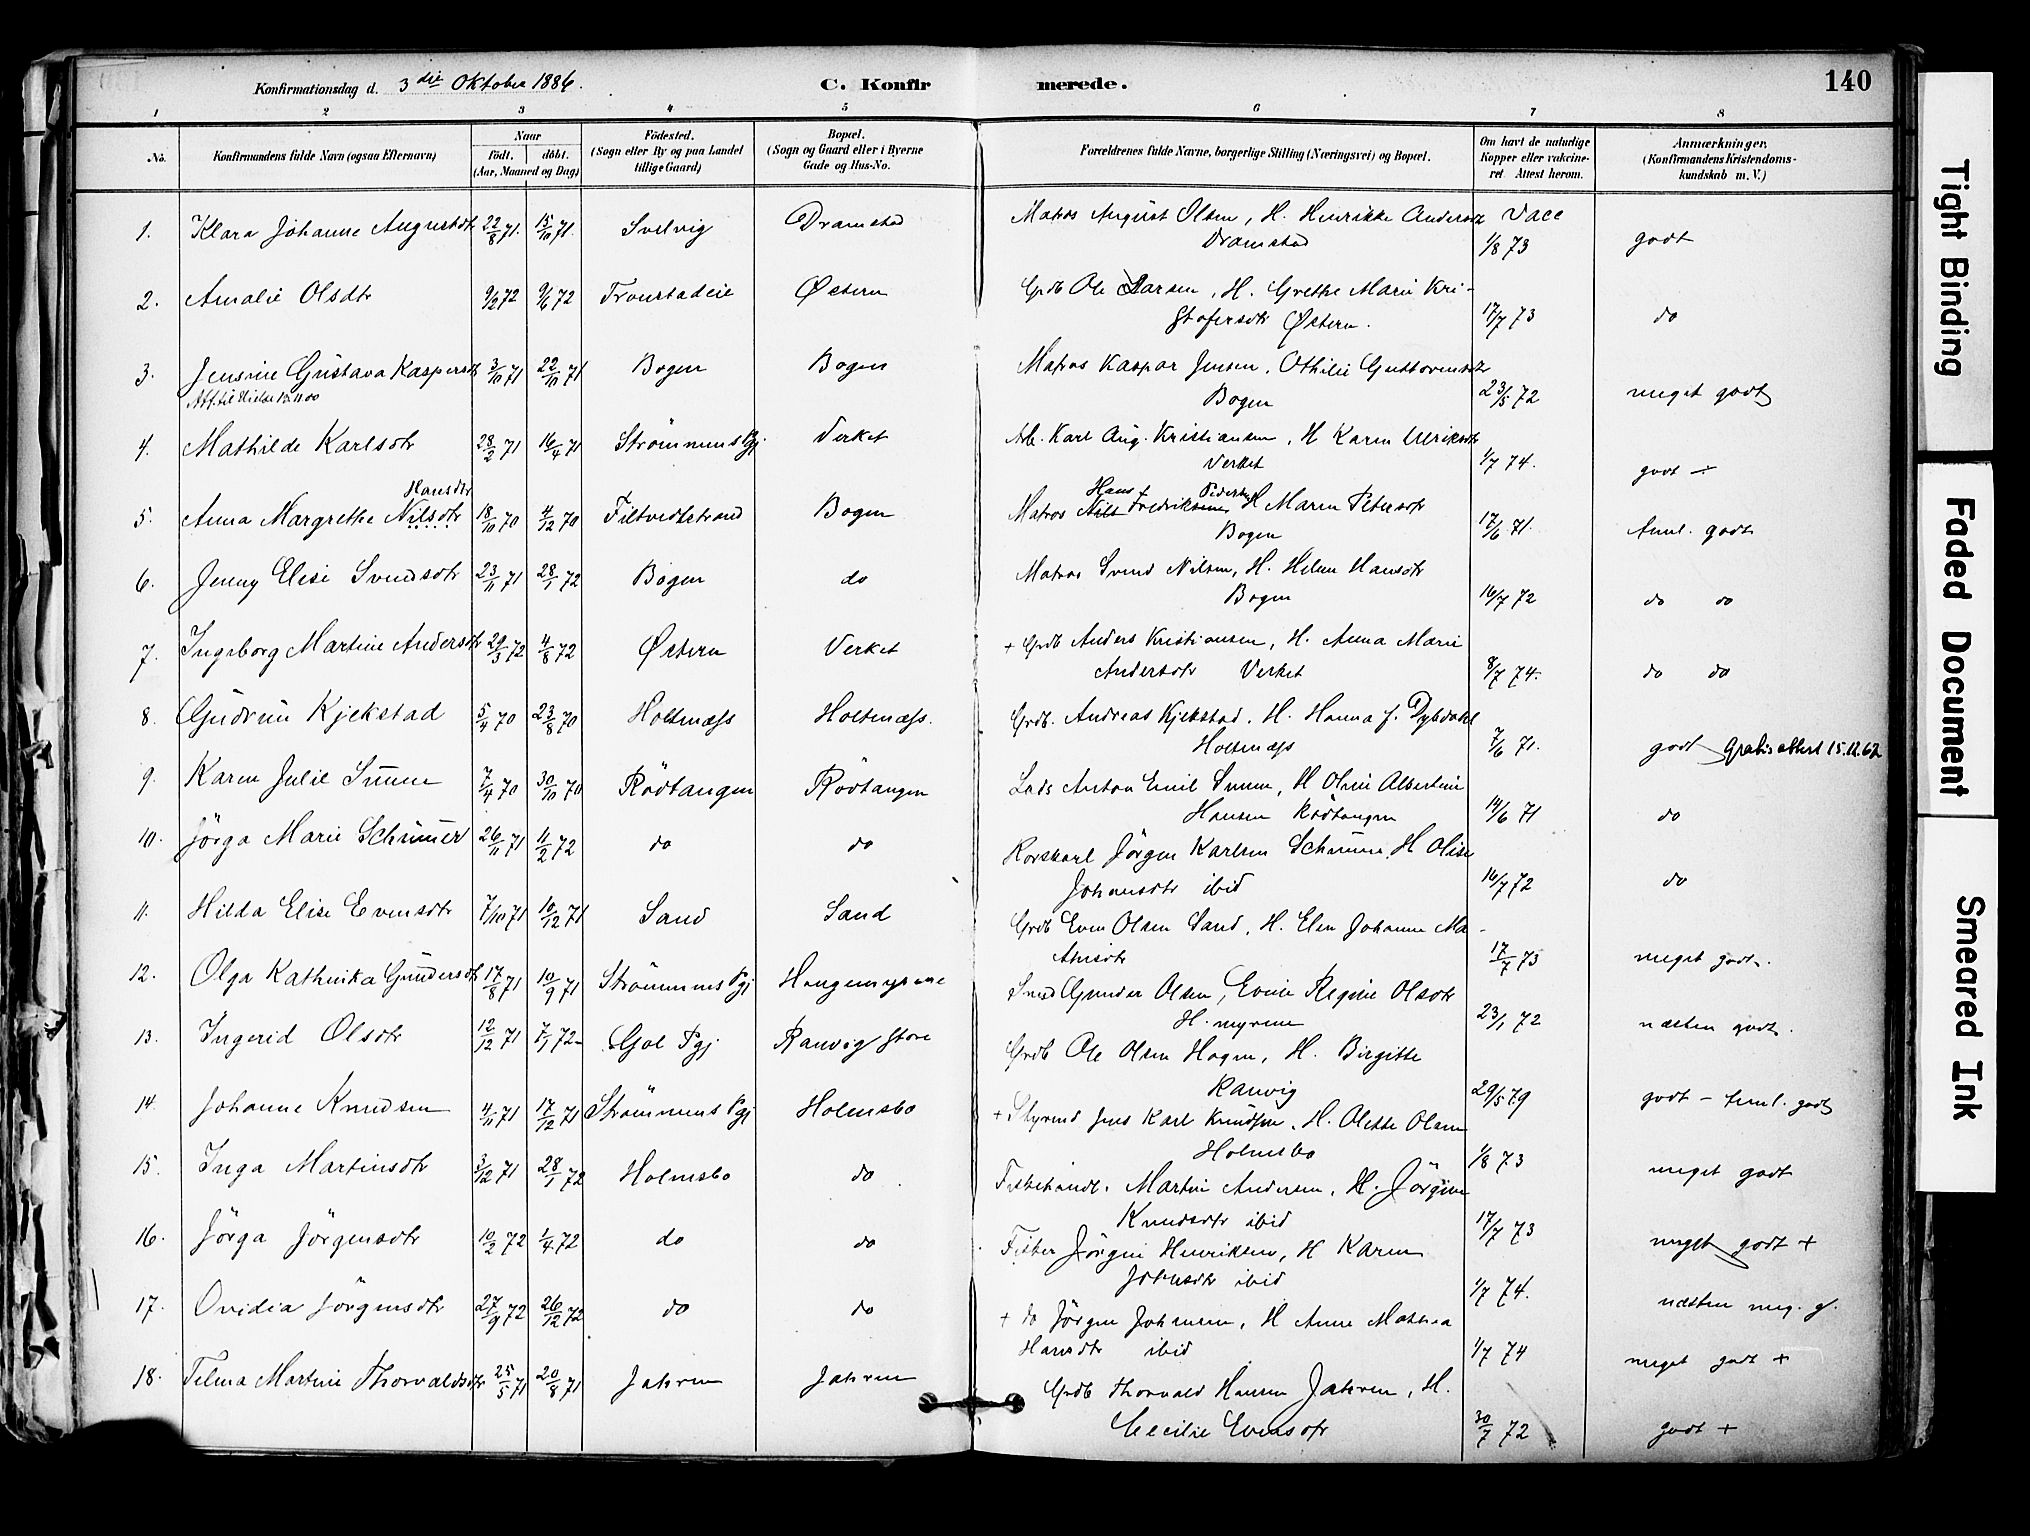 Konfirmationsdag d. 3die Oktober 1886.
C. Konfirmerede.
140
1 2 3 4 5 6 7 8
No. Konfirmandens fulde Navn (ogsaa Efternavn) Naar født. døbt. (Aar, Maaned og Dag) Fødested. (Sogn eller By og paa Landet tillige Gaard) Bopæl. (Sogn og Gaard eller i Byerne Gade og Hus-No. Forældrenes fulde Navne, borgerlige Stilling (Næringsvei) og Bopæl. Om havt de naturlige Kopper eller vakcineret. Attest herom. Anmærkninger. (Konfirmandens Kristendomskundskab m. V.)
1. Klara Johanne Augustdtr 22/8 71. 15/10 71. Svelvig Dramstad Matros August Olsen, H. Henrikke Andersdtr Vacc
Dramstad 1/8 73 godt
2. Amalie Olsdtr 9/2 72 9/6 72 Tronstadeie Østern Grdb Ole Larsen, H. Grethe Marie Kri-
stofersdtr Østern. 17/7 73 do
3. Jensine Gustava Kaspersdtr 3/10 71 22/10 71 Bogen Bogen Matros Kaspar Jensen, Othilie Guttormsdtr
Bogen 23/5 72 meget godt
4. Mathilde Karlsdtr 28/2 71 16/4 71 Strømmens Pgj. Verket Arb. Karl Aug. Kristiansen, H Karen Ulriksdtr
Verket 1/7 74. godt ÷
Hansdtr
5. Anna Margrethe Nilsdtr 18/10 70 4/12 70 Filtvedtstrand Bogen Matros Nils Fredriksen H Maren Petersdtr
Hans Pedersen
Bogen 17/6 71. teml. godt
6. Jenny Elise Svendsdtr 23/11 71 28/1 72 Bogen do Matros Svend Nilsen, H. Helene Hansdtr
Bogen 16/7 72 do do
7. Ingeborg Martine Andersdtr 29/3 72 4/8 72 Østern Verket + Grdb Anders Kristiansen, H. Anna Marie
Andersdtr Verket 8/7 74. do do
8. Gudrun Kjekstad 5/4 70 23/8 70 Holtenæss Holtenæss. Grdb. Andreas Kjekstad, H. Hanna f. Dybdahl
Holtenæss 7/6 71. godt Gratis attest 15.12.62
9. Karen Julie Simm 7/4 70 30/10 70 Rødtangen Rødtangen Lods Anton Emil Simm, H Oline Albertine
Hansen Rødtangen 14/6 71 do
10. Jørga Marie Schumer 26/11 71 11/2 72 do do Rorskarl Jørgen Karlsen Schumer, H Olise
Johansdtr ibid 16/7 72 do
11. Hilda Elise Evensdtr 7/10 71 10/12 71 Sand Sand Grdb Even Olsen Sand, H. Elen Johanne Ma-
thisdtr 17/7 73 meget godt.
12. Olga Kathinka Gundersdtr 17/8 71 10/9 71 Strømmens Pgj Haugemyrene Smed Gunder Olsen, Evine Regine Olsdtr
H. myrene 23/1 72 næsten godt.
13. Ingerid Olsdtr 12/12 71 7/1 72 Gol Pgj Ranvig store Grdb Ole Olsen Hagen, H. Birgitte
Ranvig 29/5 79 godt – teml. godt
14. Johanne Knudsen 4/11 71 17/12 71 Strømmens Pgj Holmsbo + Styrmd Jens Karl Knudsen, H. Olette Olsen
Holmsbo 1/8 73 meget godt
15. Inga Martinsdtr 3/12 71 28/1 72 Holmsbo do Fiskehandl. Martin Andersen, H. Jørgine
Knudsdtr ibid 17/7 73 meget godt +
16. Jørga Jørgensdtr 10/2 72 1/4 72 do do Fisker Jørgen Henriksen, H Karen
Johnsdtr ibid 1/7 74. næsten meg. g.
17. Ovidia Jørgensdtr 27/9 72 26/12 72 do do + do Jørgen Johnsen, H Anne Mathea
Hansdtr ibid 1/7 74 meget godt +
18. Telma Martine Thorvaldsdtr 25/5 71 20/8 71 Jahren Jahren Grdb Thorvald Hansen Jahren, H.
Cecilie Evensdtr 30/7 72 godt +
Tight Binding
Faded Document
Smeared Ink